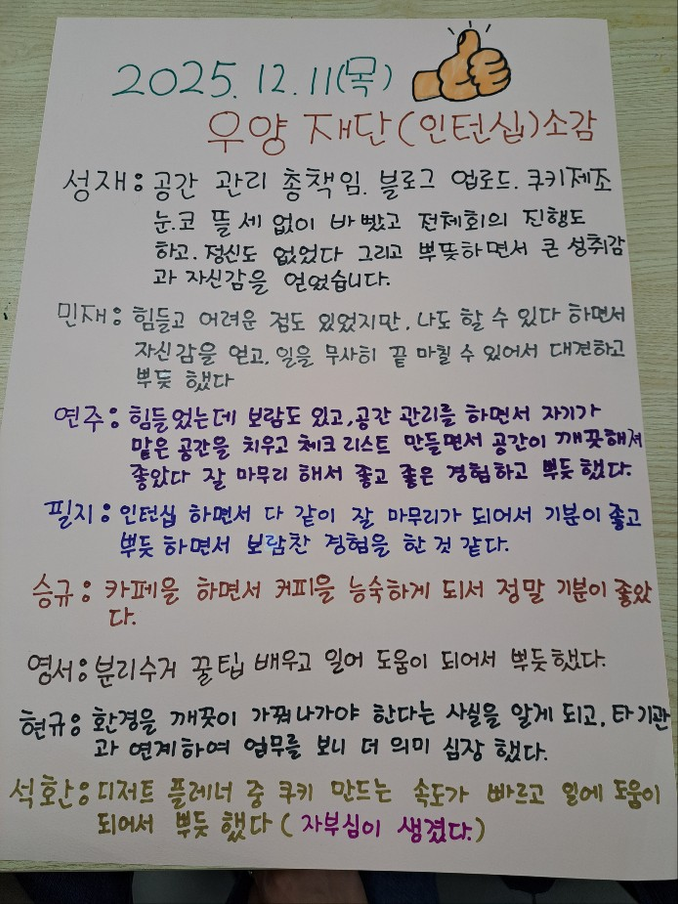 2025. 12. 11(목)
우양 재단(인턴십)소감
성재: 공간 관리 총책임. 블로그 업로드. 쿠키제조
눈.코 뜰 세 없이 바빴고 전체회의 진행도
하고. 정신도 없었다 그리고 뿌뜻하면서 큰 성취감
과 자신감을 얻었습니다.
민재: 힘들고 어려운 점도 있었지만, 나도 할 수 있다 하면서
자신감을 얻고, 일을 무사히 끝 마칠 수 있어서 대견하고
뿌듯 했다
연주: 힘들었는데 보람도 있고, 공간 관리를 하면서 자기가
맡은 공간을 치우고 체크리스트 만들면서 공간이 깨끗해져
좋았다 잘 마무리 해서 좋고 좋은 경험하고 뿌듯했다.
필지: 인턴십 하면서 다 같이 잘 마무리가 되어서 기분이 좋고
뿌듯하면서 보람찬 경험을 한 것 같다.
승규: 카페을 하면서 커피을 능숙하게 되서 정말 기분이 좋았
다.
영서: 분리수거 꿀팁 배우고 일어 도움이 되어서 뿌듯했다.
현규: 환경을 깨끗이 가꿔나가야 한다는 사실을 알게 되고, 타기관
과 연계하여 업무를 보니 더 의미 심장 했다.
석환: 디저트 플레너 중 쿠키 만드는 속도가 빠르고 일에 도움이
되어서 뿌듯 했다 ( 자부심이 생겼다.)